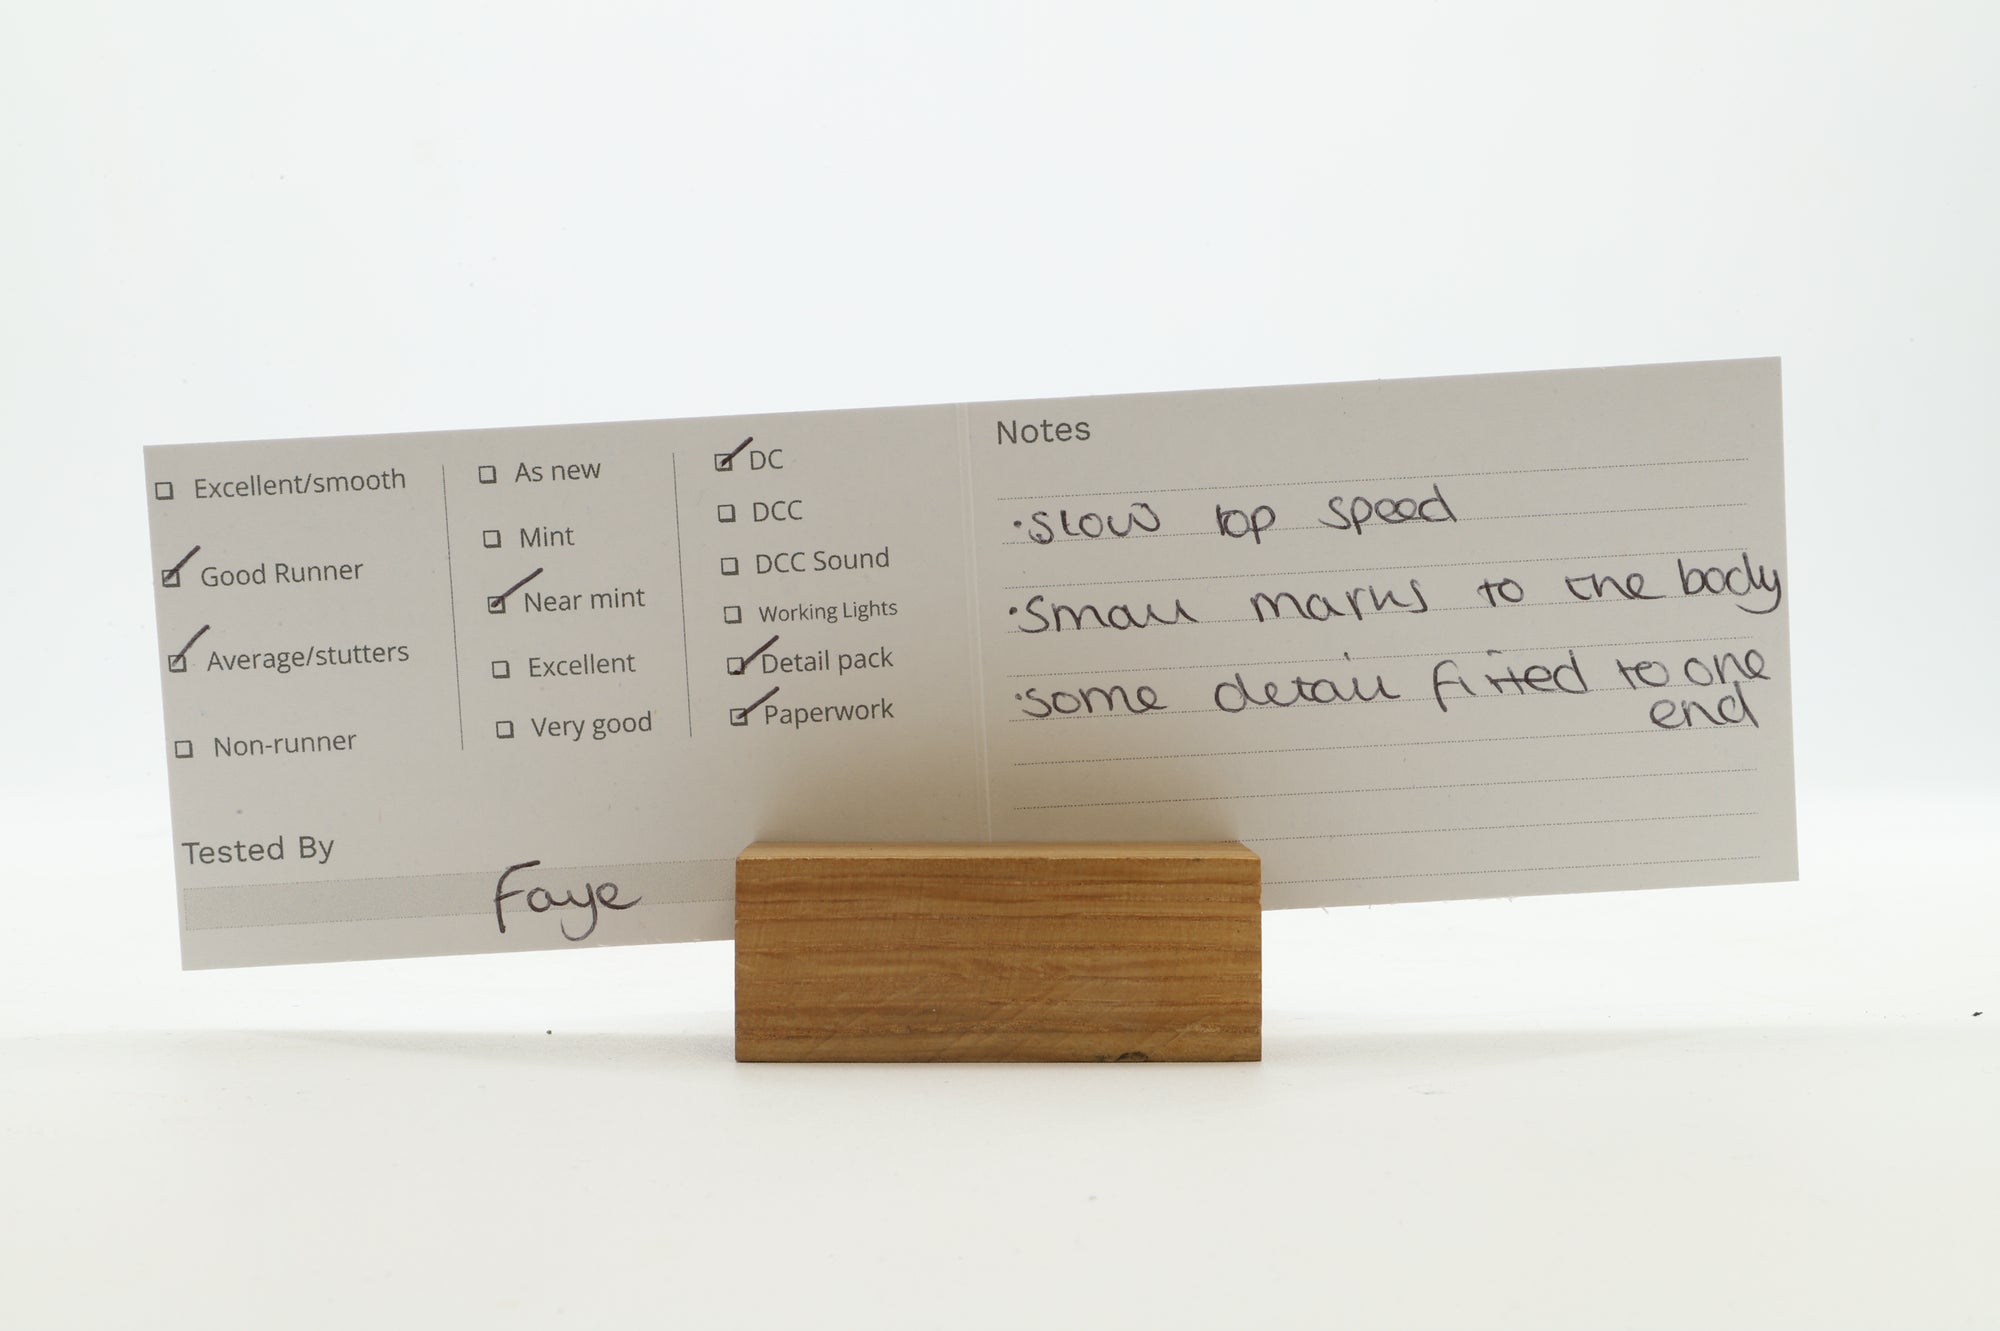 ☐ Excellent/smooth
☑ Good Runner
☑ Average/stutters
☐ Non-runner
☐ As new
☐ Mint
☑ Near mint
☐ Excellent
☐ Very good
☑ DC
☐ DCC
☐ DCC Sound
☐ Working Lights
☑ Detail pack
☑ Paperwork
Tested By
Faye
Notes
·Slow top speed
·Small marks to the body
·some detail fitted to one
end